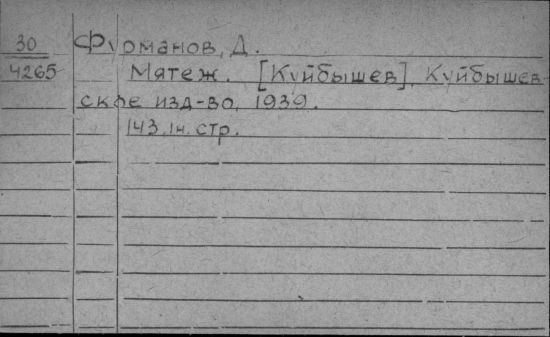 30 Фурманов, Д.
4265 Мятеж. [Куйбышев], Куйбышев-
ское изд-во, 1939.
143, 1н. стр.